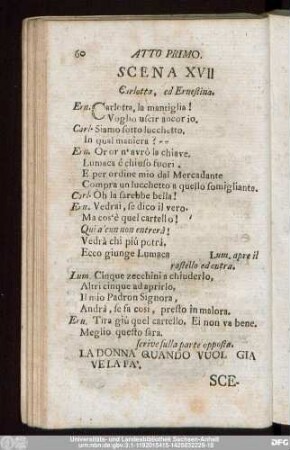 60 ATTO PRIMO.
SCENA XVII
Carlotta, ed Ernestina.
Ern. Carlotta, la mantiglia!
Voglio uscir ancor io.
Carl. Siamo sotto lucchetto.
In qual maniera? --
Ern. Or or n'avrò la chiave.
Lumaca é chiuso fuori.
E per ordine mio dal Mercadante
Compra un lucchetto a quello somigliante.
Carl. Oh la sarebbe bella!
Ern. Vedrai, se dico il vero.
Ma cos'è quel cartello!
Qui a'eun non entrerà!
Vedrà chi più potrà,
Ecco giunge Lumaca Lum. apre il
rastello ed entra.
Lum. Cinque zecchini a chiuderlo,
Altri cinque ad aprirlo,
Il mio Padron Signora,
Andrà, se fa così, presto in malora.
Ern. Tira giù quel cartello. Ei non va bene.
Meglio questo sara.
scrive sulla parte opposta.
LA DONNA QUANDO VUOL GIA
VE LA FA'.
SCE-
Universitäts- und Landesbibliothek Sachsen-Anhalt
urn:nbn:de:gbv:3:1-1192015415-1428632229-18